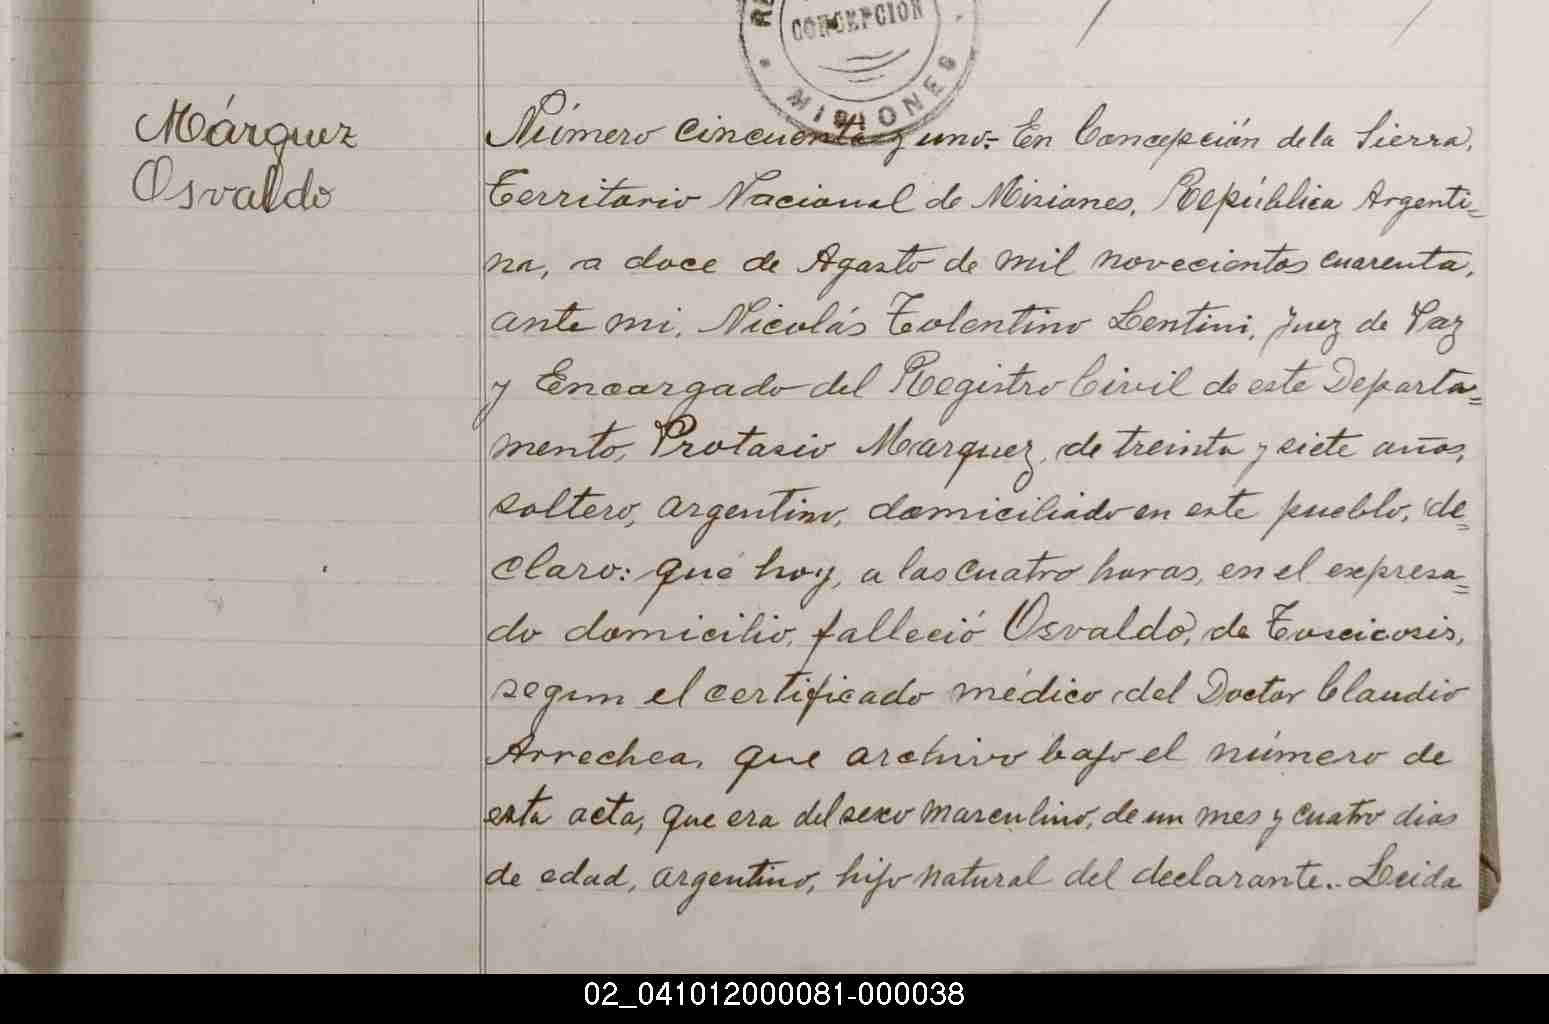 CONCEPCION
MISIONES
Márquez
Osvaldo
Número cincuenta y uno.- En Concepción de la Sierra,
Territorio Nacional de Misiones, República Argenti=
na, a doce de Agosto de mil novecientos cuarenta,
ante mi, Nicolás Tolentino Lentini, Juez de Paz
y Encargado del Registro Civil de este Departa=
mento, Protasio Marquez, de treinta y siete años,
soltero, argentino, domiciliado en este pueblo, de=
claro: que hoy, a las cuatro horas, en el expresa=
do domicilio, falleció Osvaldo, de Toxicosis,
segun el certificado médico del Doctor Claudio
Arrechea, que archivo bajo el número de
esta acta, que era del sexo masculino, de un mes y cuatro dias
de edad, argentino, hijo natural del declarante.- Leida
02_041012000081-000038